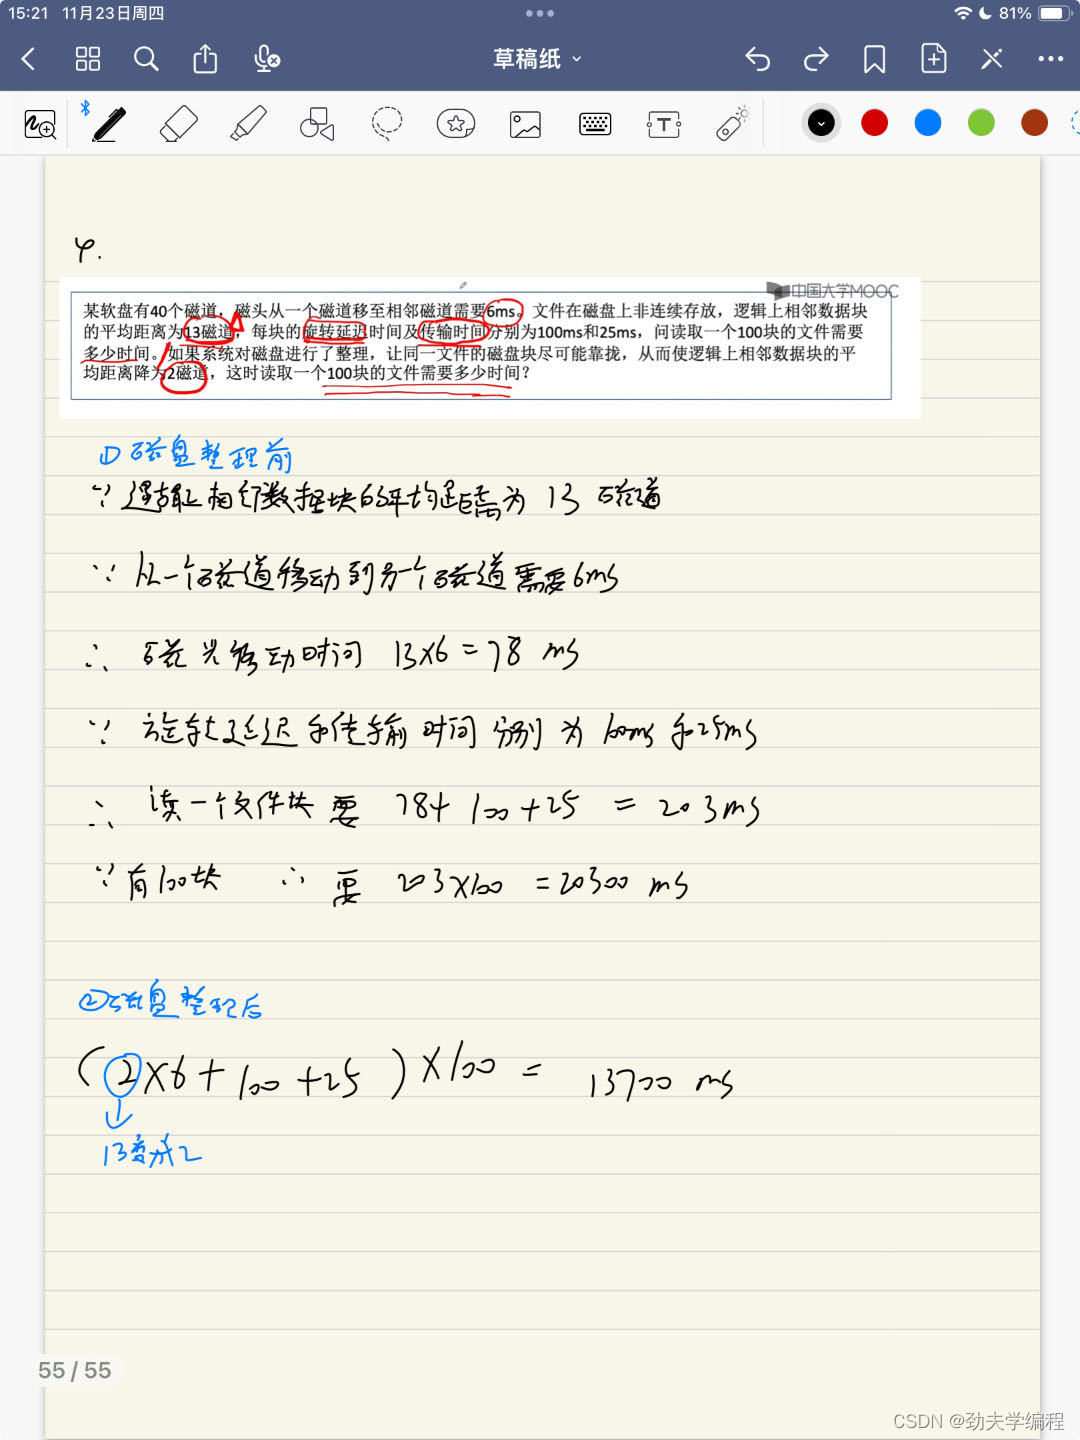 15:21 11月23日周四
81%
草稿纸
T
4.
中国大学MOOC
某软盘有40个磁道，磁头从一个磁道移至相邻磁道需要6ms。文件在磁盘上非连续存放，逻辑上相邻数据块
的平均距离为13磁道，每块的旋转延迟时间及传输时间分别为100ms和25ms，问读取一个100块的文件需要
多少时间。如果系统对磁盘进行了整理，让同一文件的磁盘块尽可能靠拢，从而使逻辑上相邻数据块的平
均距离降为2磁道，这时读取一个100块的文件需要多少时间？
① 磁盘整理前
∵ 逻辑上相邻数据块的平均距离为 13 磁道
∵ 从一个磁道移动到另一个磁道需要6ms
∴ 磁头移动时间 13×6=78 ms
∵ 旋转延迟和传输时间分别为 100ms 和25ms
∴ 读一个文件块 要 78+100+25 = 203ms
∵ 有100块 ∴ 要 203×100 =20300 ms
②磁盘整理后
(2×6+100+25)×100 = 13700 ms
13变成2
55 / 55
CSDN @劲夫学编程